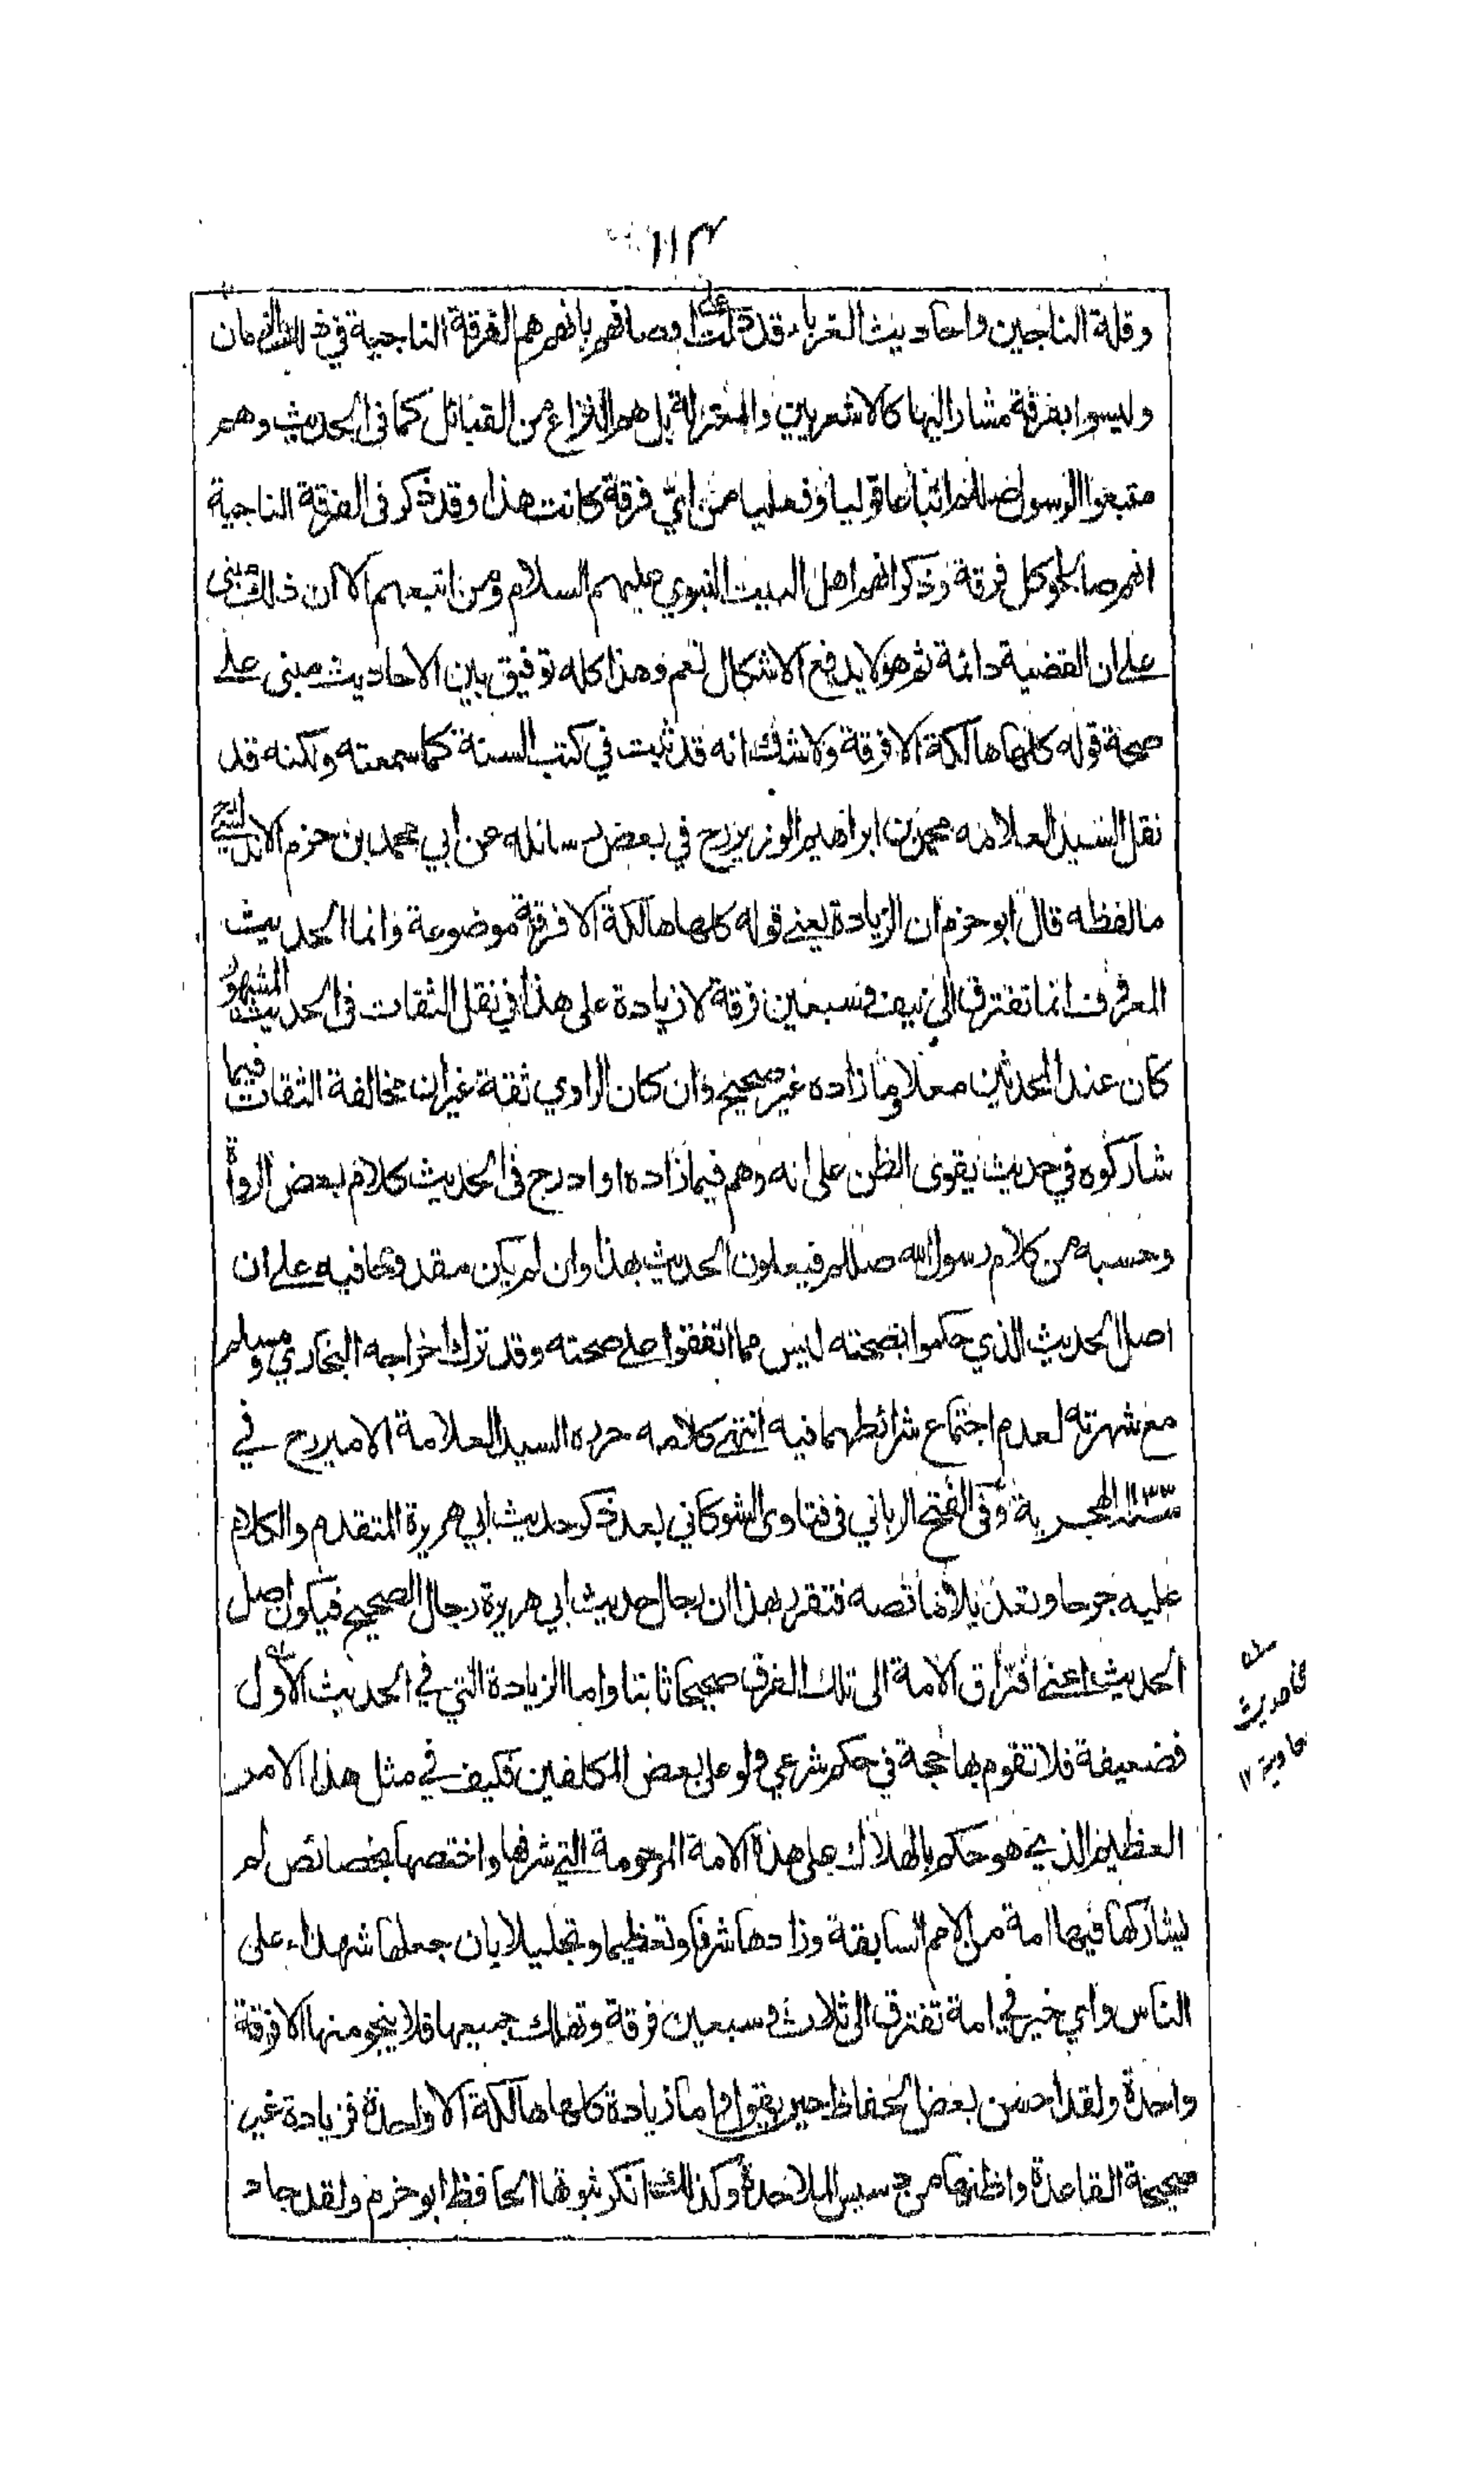 ١١٣
وقلة الناجين واحاديث الغرباء قد دلت على اوصافهم بانهم هم الفرقة الناجية في ذلك الزمان
وليسوا بفرقة مشار اليها كالاشعريين والمعتزلة بل هم النزاع من القبائل كما في الحديث وهم
متبعوا الرسول صللم اتباعا قوليا وفعليا من اي فرقة كانت هذا وقد ذكر في الفرقة الناجية
انهم صالحو كل فرقة وذكر انهم اهل البيت النبوي عليهم السلام ومن اتبعهم الا ان ذلك مبني
على ان القضية دائمة ثم هو لا يدفع الاشكال نعم وهذا كله توفيق بين الاحاديث مبنى على
صحة قوله كلها هالكة الا فرقة ولا شك انه قد ثبت في كتب السنة كما سمعته ولكنه قد
نقل السيد العلامه محمد بن ابراهيم الوزير رح في بعض رسائله عن ابي محمد بن حزم الاندلسي رح
ما لفظه قال ابو حزم ان الزيادة يعني قوله كلها هالكة الا فرقة موضوعة وانما الحديث
المعروف انما تفترق الى نيف وسبعين فرقة لا زيادة على هذا في نقل الثقات في الحديث المشهور
كان عند المحدثين معلا وما زاده غير صحيح وان كان الراوي ثقة غير ان مخالفة الثقات فيما
شاركوه في حديث يقوى الظن على انه وهم فيما زاده او ادرج في الحديث كلام بعض الرواة
وحسبه من كلام رسول الله صللم فيعلون الحديث بهذا وان لم يكن مقدوحا فيه على ان
اصل الحديث الذي حكموا بصحته ليس مما اتفقوا على صحته وقد ترك اخراجه البخاري ومسلم
مع شهرته لعدم اجتماع شرائطهما فيه انتهى كلامه حرره السيد العلامة الامير رح في
سنة ١١٣٣ الهجرية وفي الفتح الرباني في فتاوى الشوكاني بعد ذكر حديث ابي هريرة المتقدم والكلام
عليه جرحا وتعديلا ما نصه فتقرر بهذا ان رجال حديث ابي هريرة رجال الصحيح فيكون اصل
الحديث اعني افتراق الامة الى تلك الفرق صحيحا ثابتا واما الزيادة التي في الحديث الاول
فضعيفة فلا تقوم بها حجة في حكم شرعي ولو على بعض المكلفين فكيف في مثل هذا الامر
العظيم الذي هو حكم بالهلاك على هذه الامة المرحومة التي شرفها واختصها بخصائص لم
يشاركها فيها امة من الامم السابقة وزادها شرفا وتعظيما وتجليلا بان جعلها شهداء على
الناس واي خير في امة تفترق الى ثلاث وسبعين فرقة وتهلك جميعها فلا ينجو منها الا فرقة
واحدة ولقد احسن بعض الحفاظ حيث يقول واما زيادة كلها هالكة الا واحدة فزيادة غير
صحيحة القاعدة واظنها من دسيس الملاحدة وكذلك انكر ثبوتها الحافظ ابو حزم ولقد جاد
حديث
معاوية ١٢